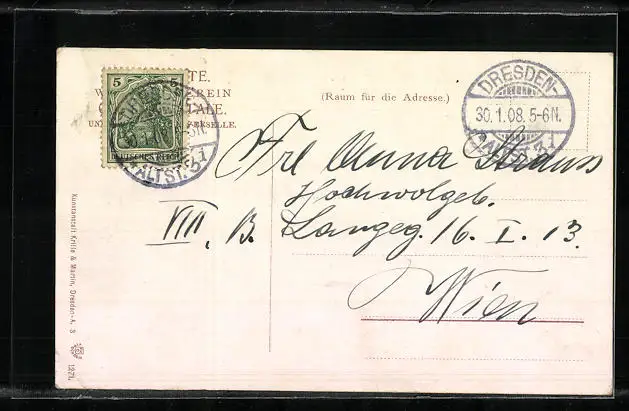 5
TE.
W EREIN
C TALE.
UN ERSELLE.
DEUTSCHES REICH
ALTST. 31
(Raum für die Adresse.)
DRESDEN-
30.1.08. 5-6N.
ALTST. 31
Frl Anna Strauss
Hochwolgeb.
VIII, B. Langeg. 16. I. 13.
Wien
Kunstanstalt Krille & Martin, Dresden-A. 3
1271